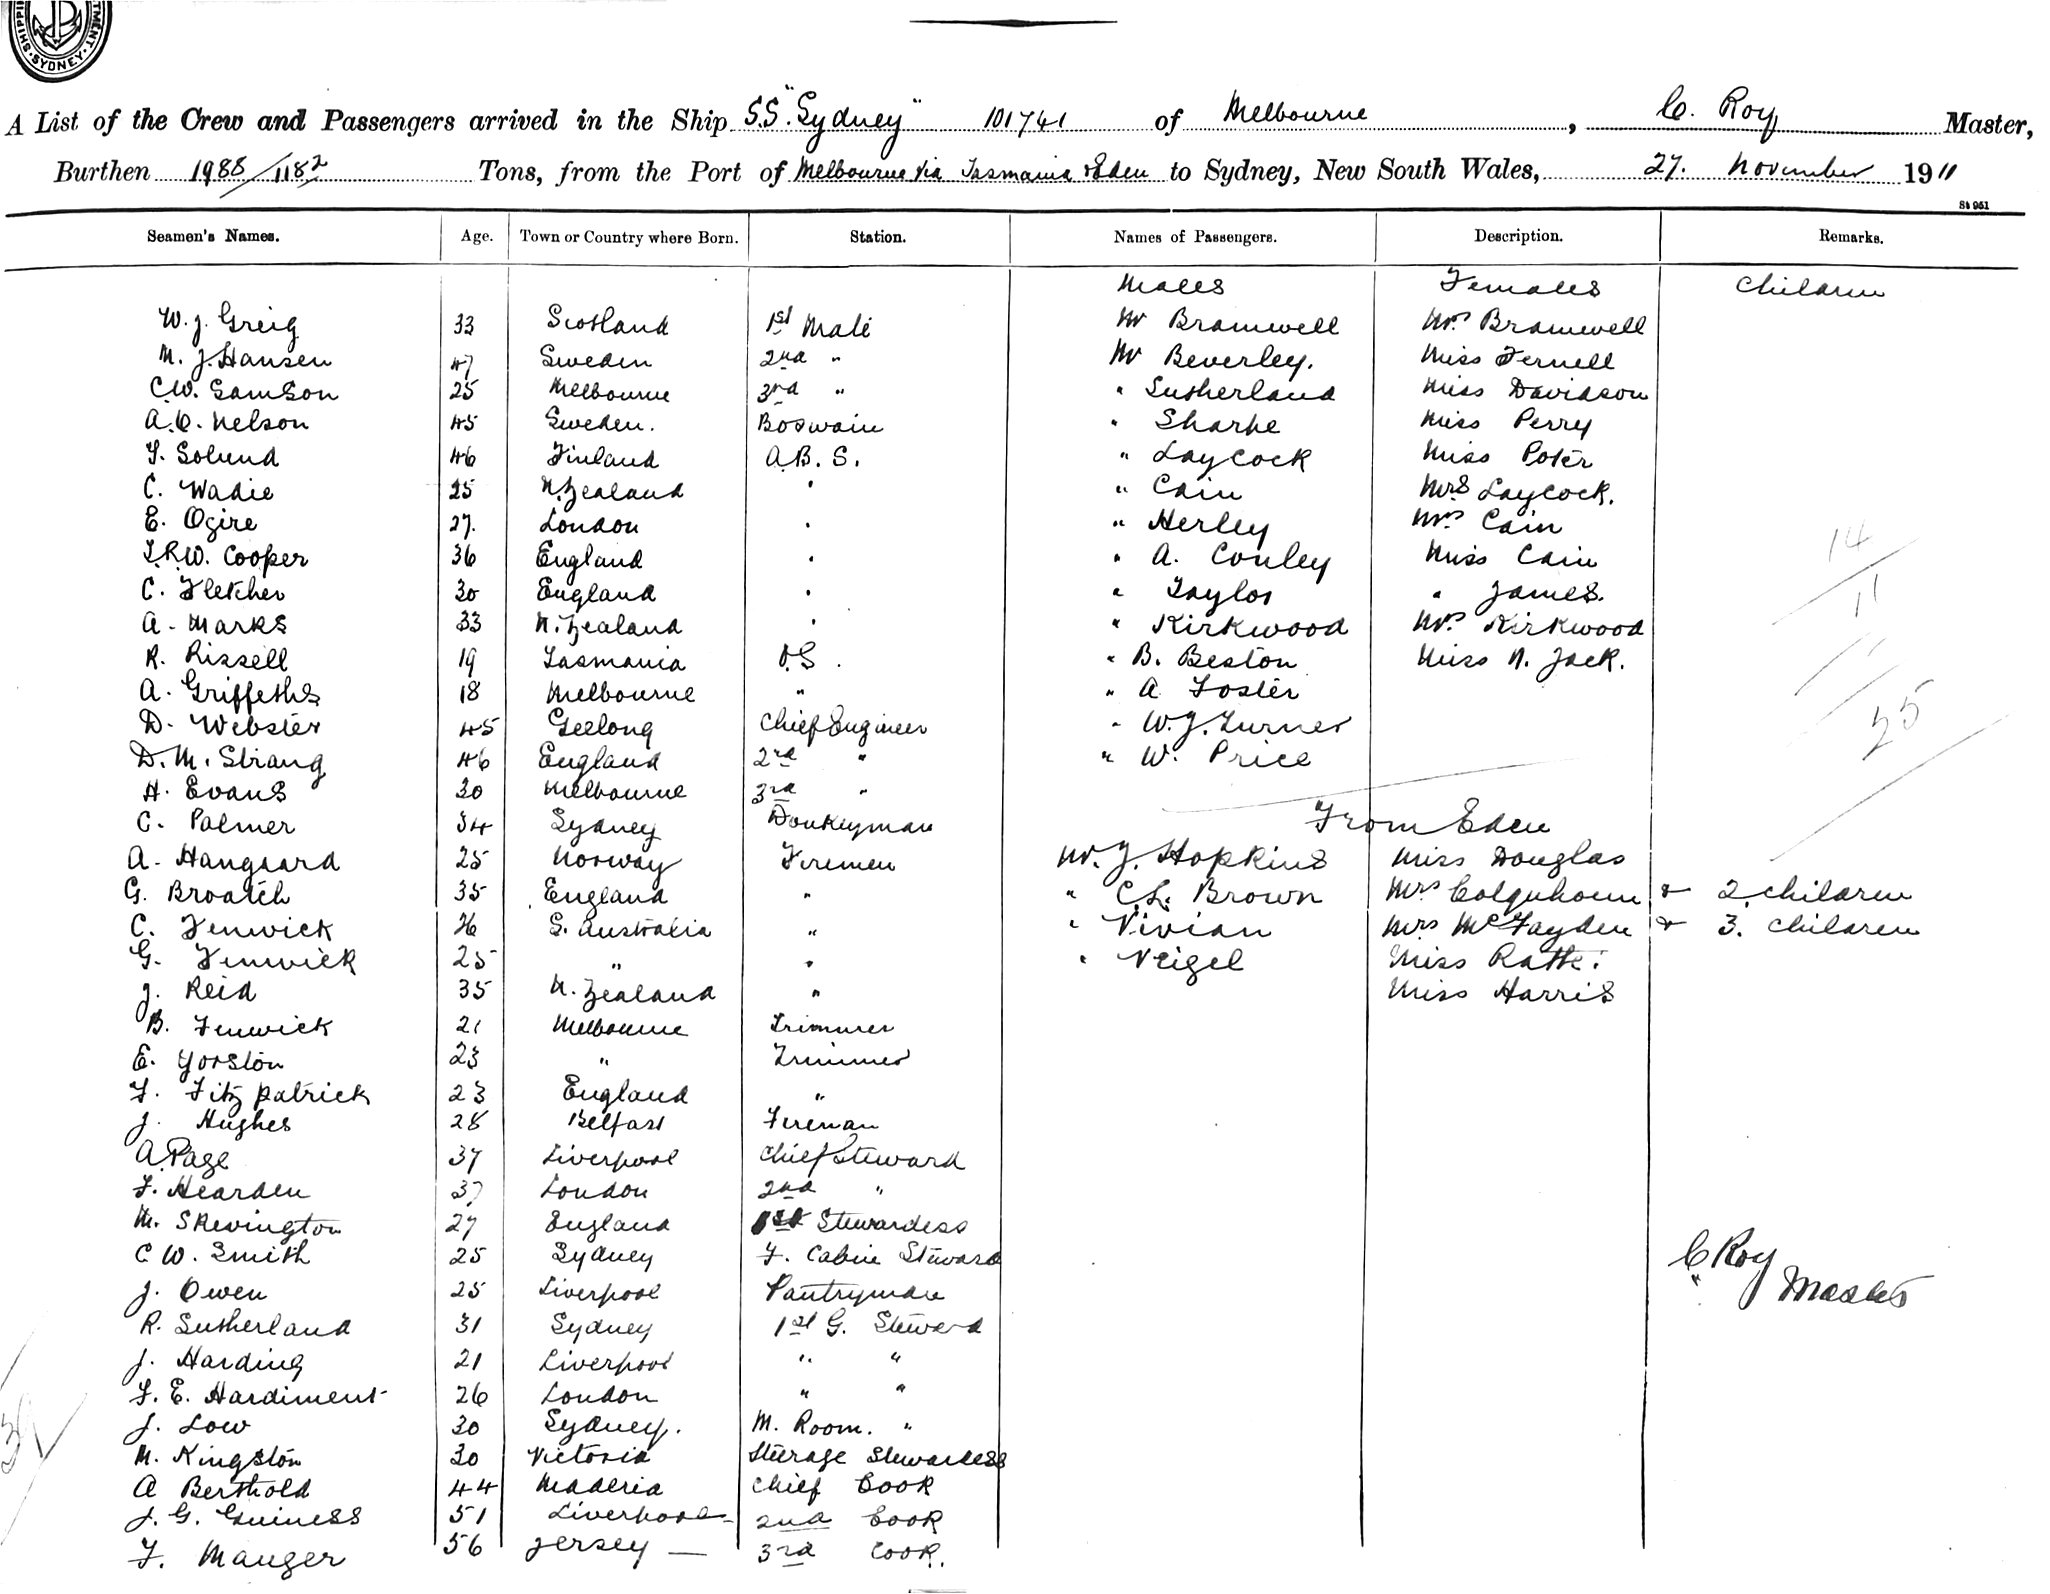 SHIPPING DEPARTMENT SYDNEY
A List of the Crew and Passengers arrived in the Ship S.S. "Sydney" 101741 of Melbourne, C. Roy Master,
Burthen 1988/1182 Tons, from the Port of Melbourne via Tasmania & Eden to Sydney, New South Wales, 27. November 1911
St 951
Seamen's Names. Age. Town or Country where Born. Station. Names of Passengers. Description. Remarks.
Males Females Children
W. J. Greig 33 Scotland 1st Mate Mr Bramwell Mrs Bramwell
M. J. Hansen 47 Sweden 2nd " Mr Beverley. Miss Fernell
C.W. Samson 25 Melbourne 3rd " " Sutherland Miss Davidson
A.C. Nelson 45 Sweden. Boswain " Sharke Miss Perry
F. Solund 46 Finland A.B.S. " Laycock Miss Poter
C. Wadie 25 N. Zealand " " Cain Mrs Laycock.
E. Ogire 27. London " " Herley Mrs Cain
T.R.W. Cooper 36 England " " A. Conley Miss Cain 14
C. Fletcher 30 England " " Taylor " James. 11
A. Marks 33 N. Zealand " " Kirkwood Mrs Kirkwood
R. Rissell 19 Tasmania O.S. " B. Beston Miss N. Jack.
A. Griffeths 18 Melbourne " " A Foster
D. Webster 45 Geelong Chief Engineer " W.J. Turner 25
D. M. Strang 46 England 2nd " " W. Price
H. Evans 30 Melbourne 3rd "
C. Palmer 34 Sydney Donkeyman From Eden
A. Hangaard 25 Norway Firemen Mr. J. Hopkins Miss Douglas
G. Broatch 35 England " " C.L. Brown Mrs Colquhoun & 2 children
C. Fenwick 26 S. Australia " " Vivian Mrs McFayden & 3. children
G. Fenwick 25 " " " Veigel Miss Ratte.
J. Reid 35 N. Zealand " Miss Harris
B. Fenwick 21 Melbourne Trimmer
E. Yorston 23 " Trimmer
F. Fitzpatrick 23 England "
J. Hughes 28 Belfast Fireman
A. Page 37 Liverpool Chief Steward
F. Hearden 37 London 2nd "
M. Skevington 27 England 1st Stewardess
C W. Smith 25 Sydney F. Cabin Steward C Roy
J. Owen 25 Liverpool Pantryman " Master
R. Sutherland 31 Sydney 1st G. Steward
J. Harding 21 Liverpool " "
F. E. Hardiment 26 London " "
J. Low 30 Sydney. M. Room. "
M. Kingston 30 Victoria Steerage Stewardess
A Berthold 44 Maderia Chief Cook
J. G. Guiness 51 Liverpool 2nd Cook
F. Mauger 56 Jersey 3rd Cook.